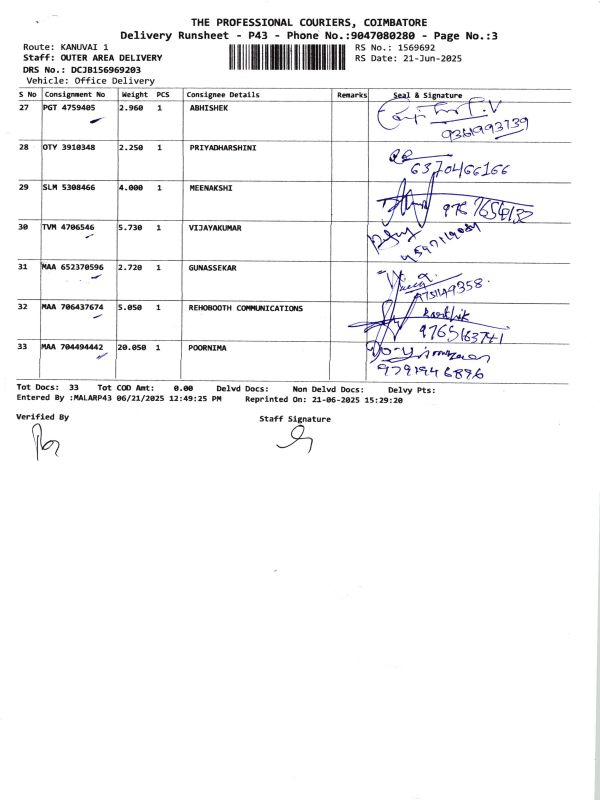 THE PROFESSIONAL COURIERS, COIMBATORE
Delivery Runsheet - P43 - Phone No.:9047080280 - Page No.:3
Route: KANUVAI 1
RS No.: 1569692
Staff: OUTER AREA DELIVERY
RS Date: 21-Jun-2025
DRS No.: DCJB156969203
Vehicle: Office Delivery
S No Consignment No Weight PCS Consignee Details Remarks Seal & Signature
27 PGT 4759405 2.960 1 ABHISHEK
9361993739
28 OTY 3910348 2.250 1 PRIYADHARSHINI
6370466166
29 SLM 5308466 4.000 1 MEENAKSHI
30 TVM 4706546 5.730 1 VIJAYAKUMAR
31 MAA 652370596 2.720 1 GUNASSEKAR
32 MAA 706437674 5.050 1 REHOBOOTH COMMUNICATIONS
9765163741
33 MAA 704494442 20.050 1 POORNIMA
9791946896
Tot Docs: 33 Tot COD Amt: 0.00 Delvd Docs: Non Delvd Docs: Delvy Pts:
Entered By :MALARP43 06/21/2025 12:49:25 PM Reprinted On: 21-06-2025 15:29:20
Verified By
Staff Signature